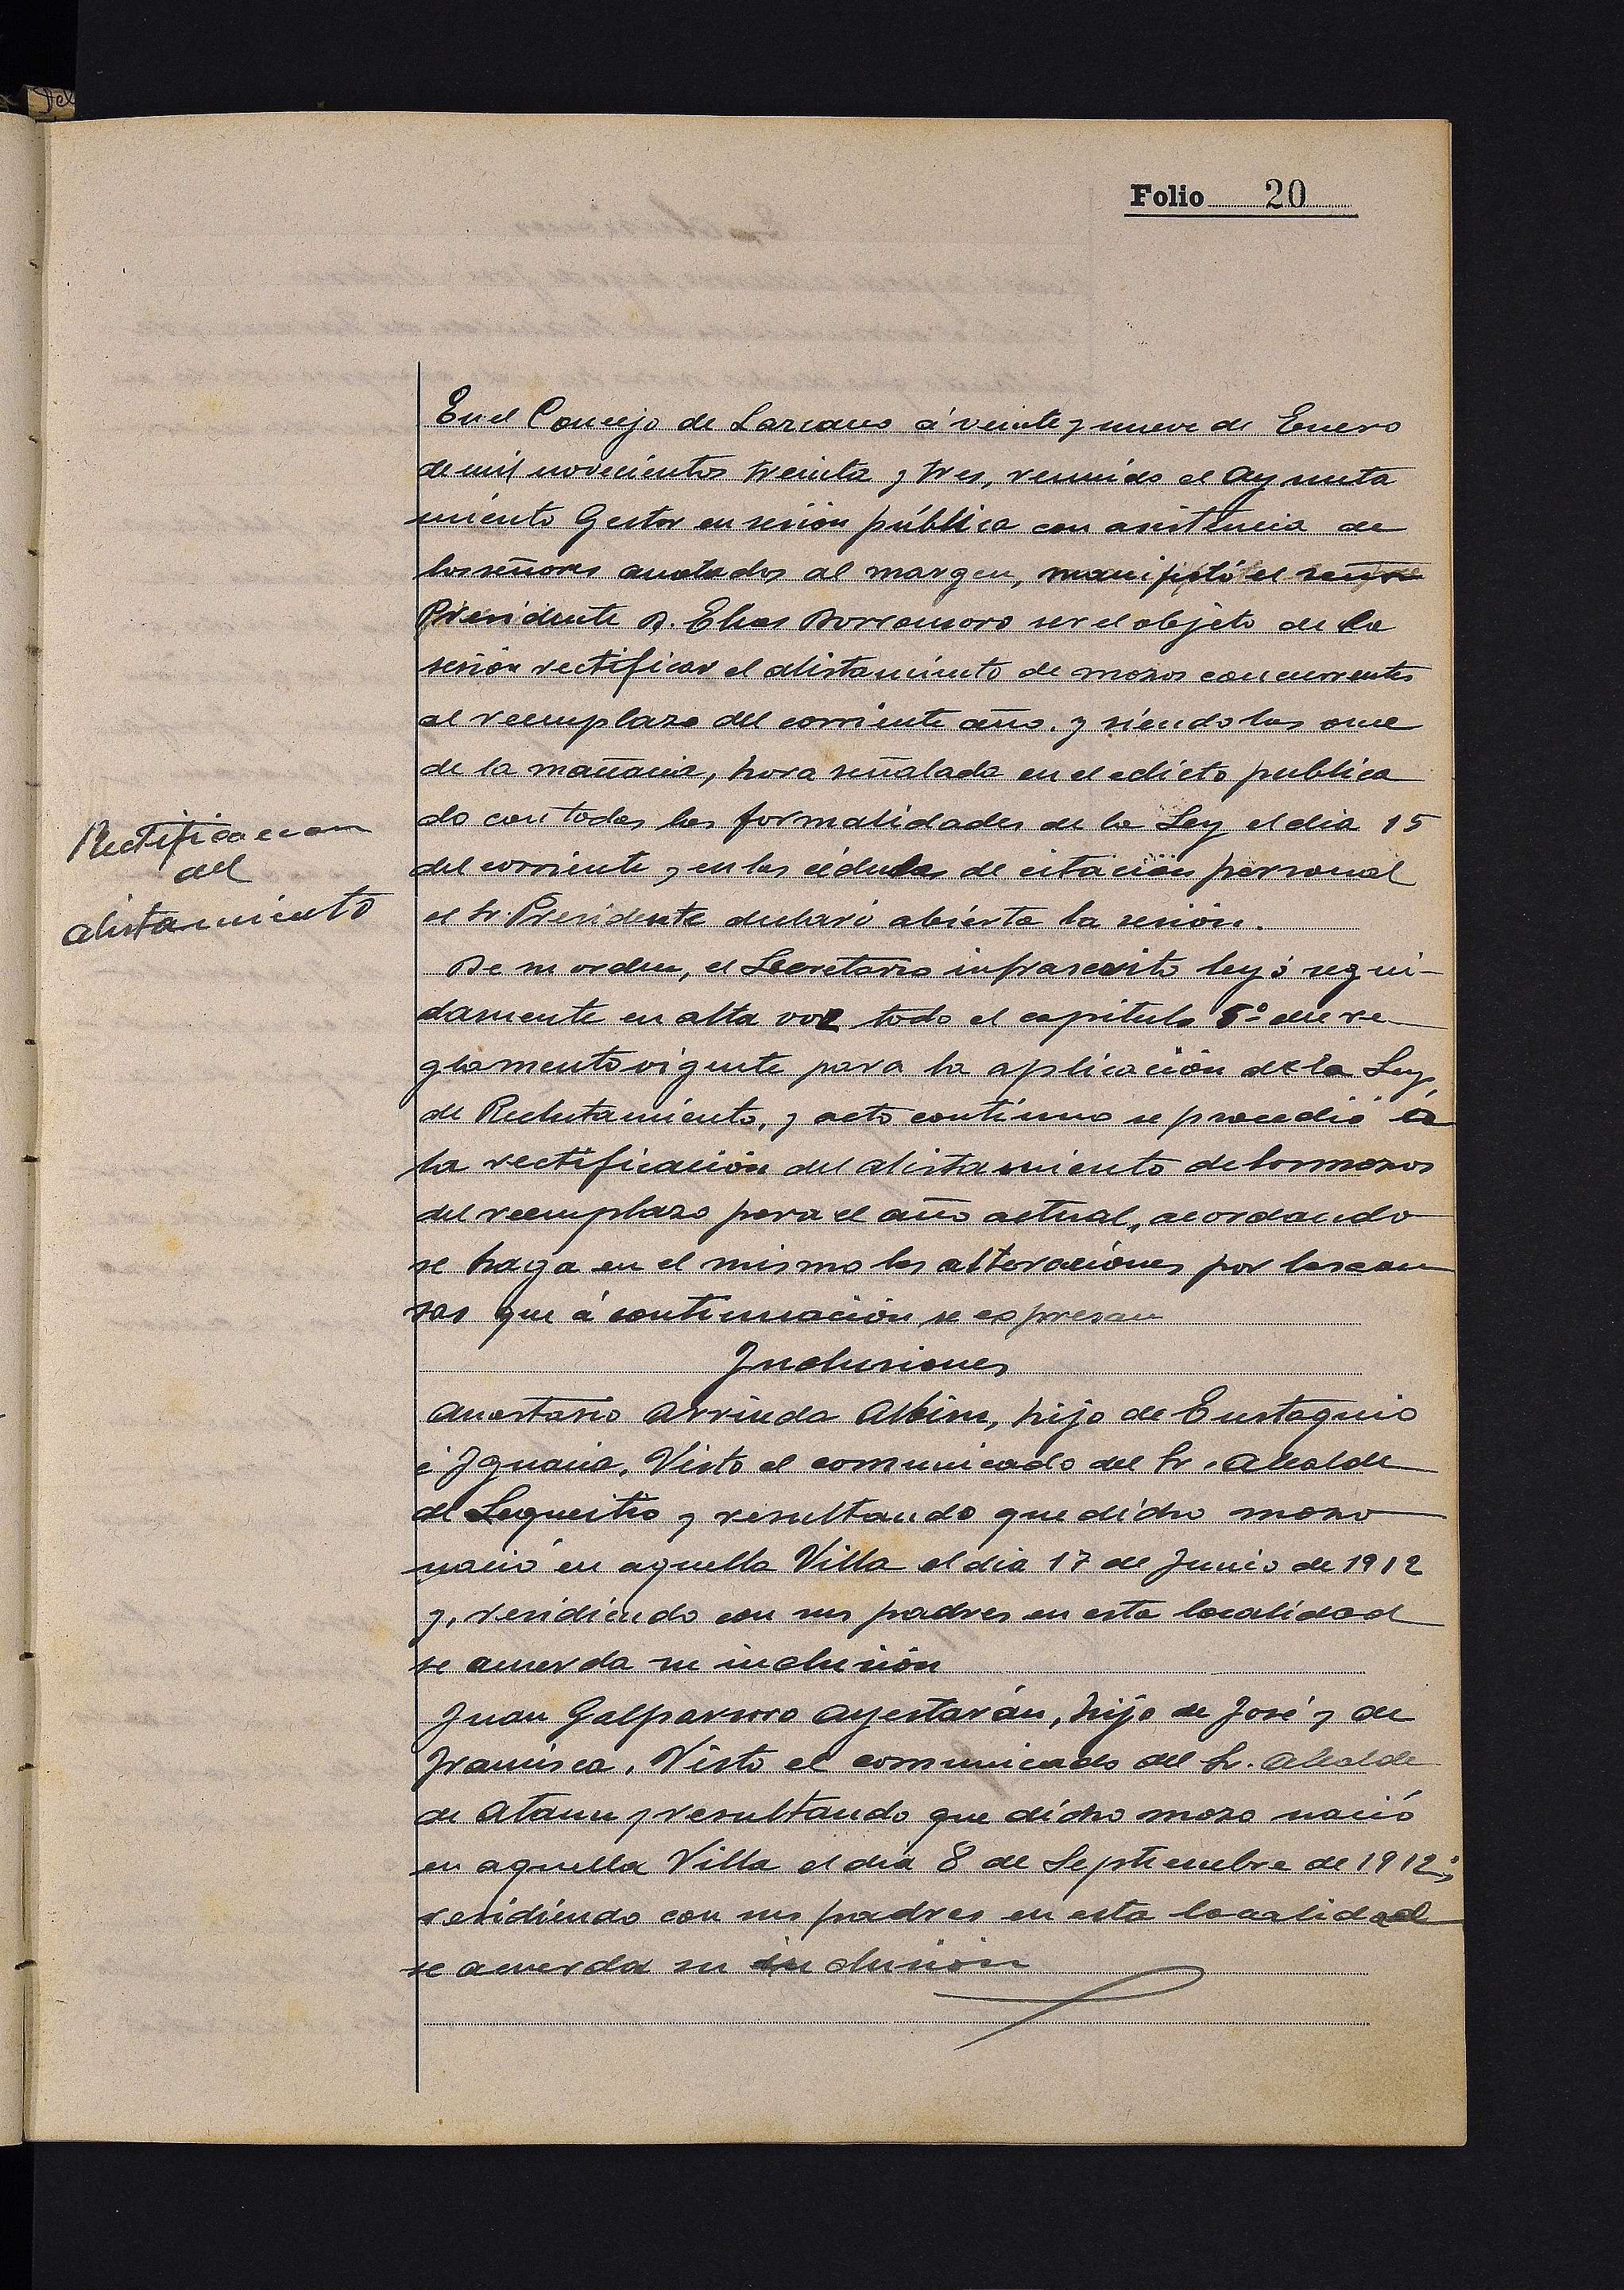 Folio 20
En el Concejo de Lazcano á veinte y nueve de Enero
de mil novecientos treinta y tres, reunido el Ayunta
miento Gestor en sesión pública con asistencia de
los señores anotados al margen, manifestó el señor
Presidente D. Elias Dorronsoro ser el objeto de la
sesión rectificar el alistamiento de mozos concurrentes
al reemplazo del corriente año. y siendo las once
de la mañana, hora señalada en el edicto publica
do con todas las formalidades de la Ley el dia 15
del corriente y en las cédulas de citación personal
el Sr. Presidente declaró abierta la sesión.
Rectificacion
del
alistamiento
De su orden, el Secretario infrascrito leyó segui-
damente en alta voz todo el capitulo 5º del re
glamento vigente para la aplicación de la Ley
de Reclutamiento, y acto continuo se procedió á
la rectificación del alistamiento de los mozos
del reemplazo para el año actual, acordando
se haga en el mismo las alteraciones por las cau
sas que á continuación se espresan
Inclusiones
Anastasio Arrinda Albizu, hijo de Eustaquio
é Ignacia. Visto el comunicado del Sr. Alcalde
de Lequeitio y resultando que dicho mozo
nació en aquella Villa el dia 17 de Junio de 1912
y, residiendo con sus padres en esta localidad
se acuerda su inclusión
Juan Galparsoro Ayestarán, hijo de José y de
Francisca. Visto el comunicado del Sr. Alcalde
de Ataun y resultando que dicho mozo nació
en aquella Villa el dia 8 de Septiembre de 1912;
residiendo con sus padres en esta localidad
se acuerda su inclusión